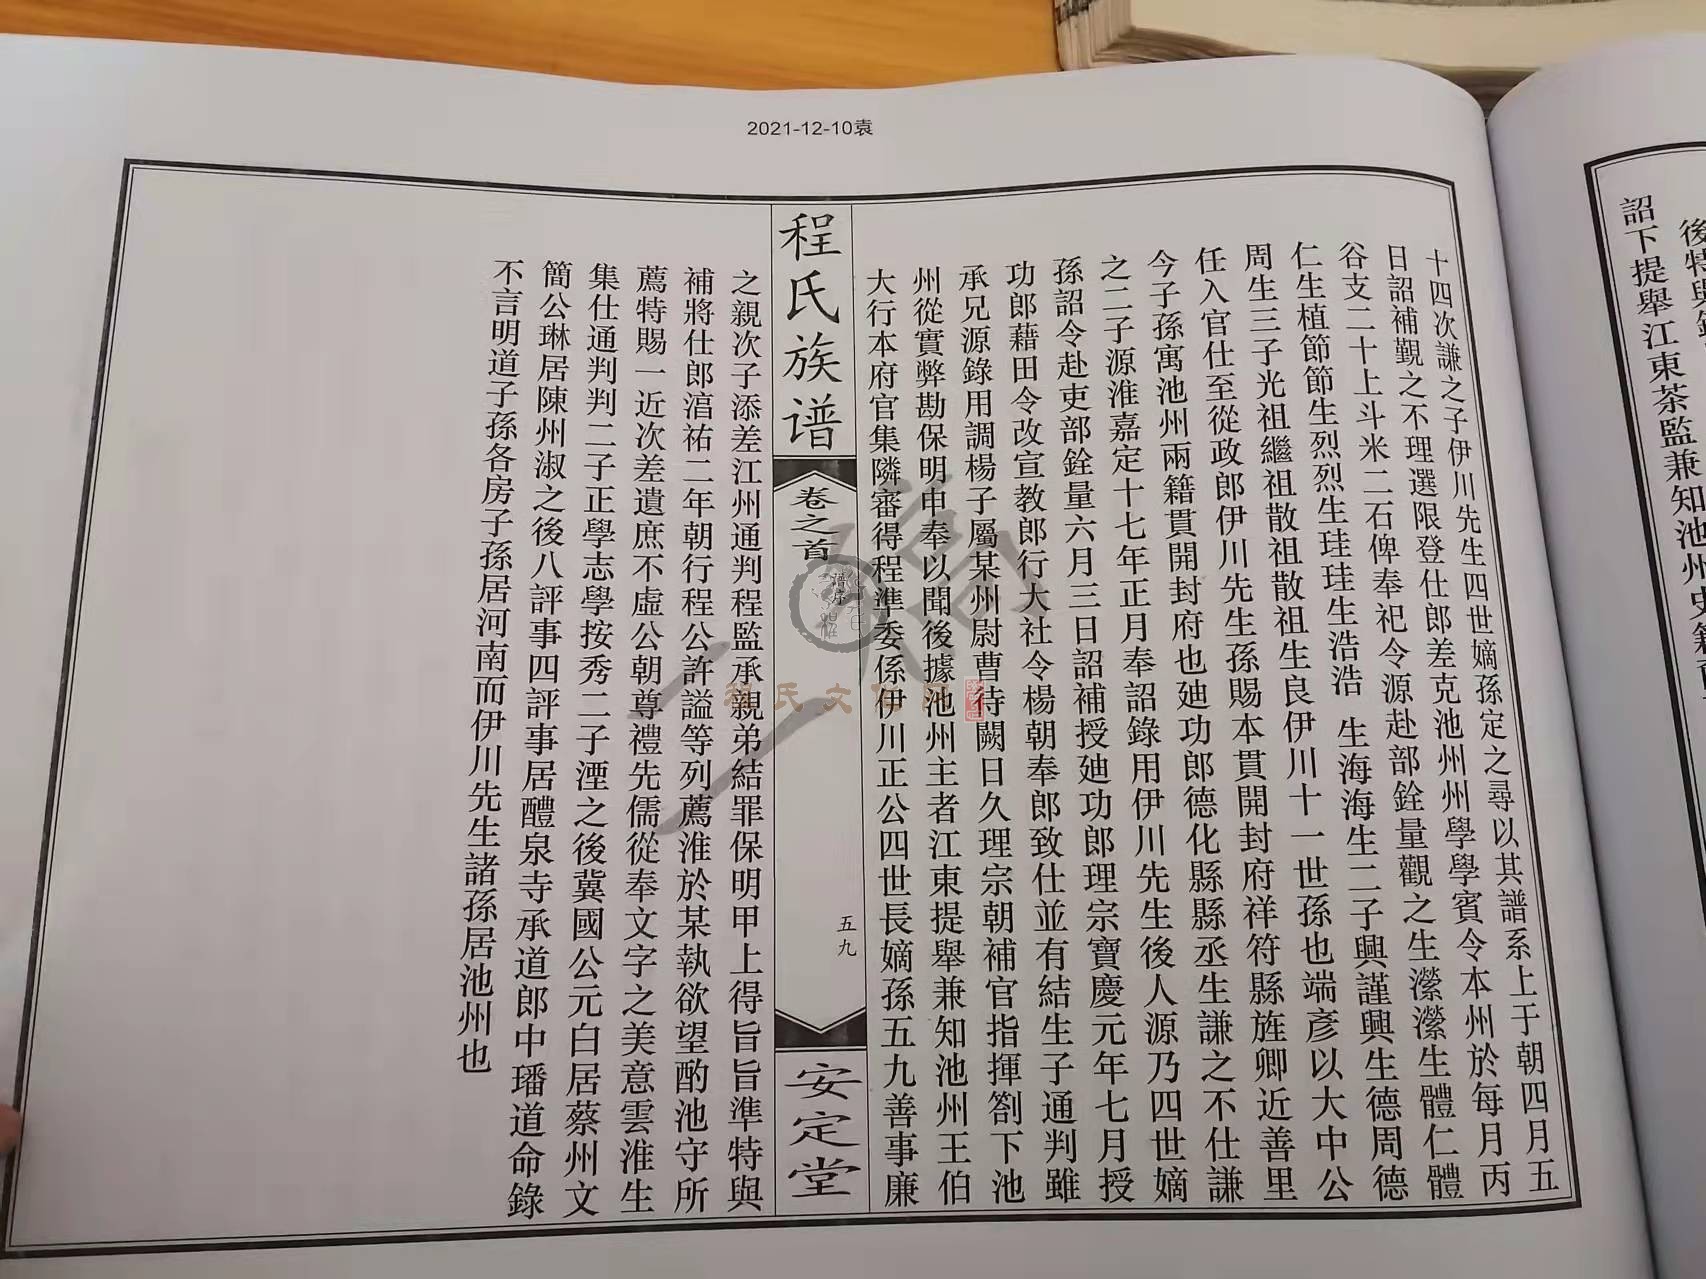 2021-12-10袁
後特與
詔下提舉江東茶監兼知池州史
十四次謙之子伊川先生四世嫡孫定之尋以其譜系上于朝四月五
日詔補觀之不理選限登仕郎差克池州州學學賓令本州於每月丙
谷支二十上斗米二石俾奉祀令源赴部銓量觀之生瀠瀠生體仁體
仁生植節節生烈烈生珪珪生浩浩 生海海生二子興謹興生德周德
周生三子光祖繼祖散祖散祖生良伊川十一世孫也端彥以大中公
任入官仕至從政郎伊川先生孫賜本貫開封府祥符縣旌卿近善里
今子孫寓池州兩籍貫開封府也廸功郎德化縣縣丞生謙之不仕謙
之二子源淮嘉定十七年正月奉詔錄用伊川先生後人源乃四世嫡
孫詔令赴吏部銓量六月三日詔補授廸功郎理宗寶慶元年七月授
功郎藉田令改宣教郎行大社令楊朝奉郎致仕並有結生子通判雖
承兄源錄用調楊子屬某州尉曹待闕日久理宗朝補官指揮劄下池
州從實弊勘保明申奉以聞後據池州主者江東提舉兼知池州王伯
大行本府官集隣審得程準委係伊川正公四世長嫡孫五九善事廉
程氏族谱
卷之首
五九
安定堂
之親次子添差江州通判程監承親弟結罪保明甲上得旨旨準特與
補將仕郎淯祐二年朝行程公許謚等列薦淮於某執欲望酌池守所
薦特賜一近次差遺庶不虛公朝尊禮先儒從奉文字之美意雲淮生
集仕通判判二子正學志學按秀二子湮之後冀國公元白居蔡州文
簡公琳居陳州淑之後八評事四評事居醴泉寺承道郎中璠道命錄
不言明道子孫各房子孫居河南而伊川先生諸孫居池州也
程氏文化网